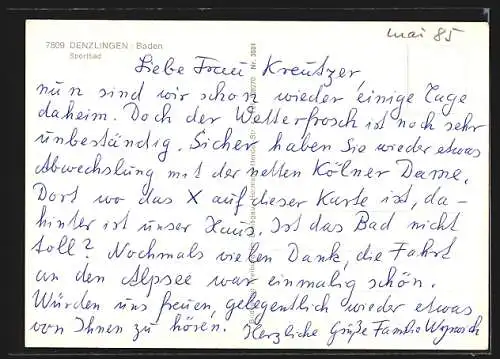 mai 85
7809 DENZLINGEN · Baden
Sportbad
Liebe Frau Kreutzer,
nun sind wir schon wieder einige Tage
daheim. Doch der Wetterfrosch ist noch sehr
unbeständig. Sicher haben Sie wieder etwas
Abwechslung mit der netten Kölner Dame.
Dort wo das X auf dieser Karte ist, da-
hinter ist unser Haus. Ist das Bad nicht
toll? Nochmals vielen Dank, die Fahrt
an den Alpsee war einmalig schön.
Würden uns freuen, gelegentlich wieder etwas
von Ihnen zu hören. Herzliche Grüße Familie